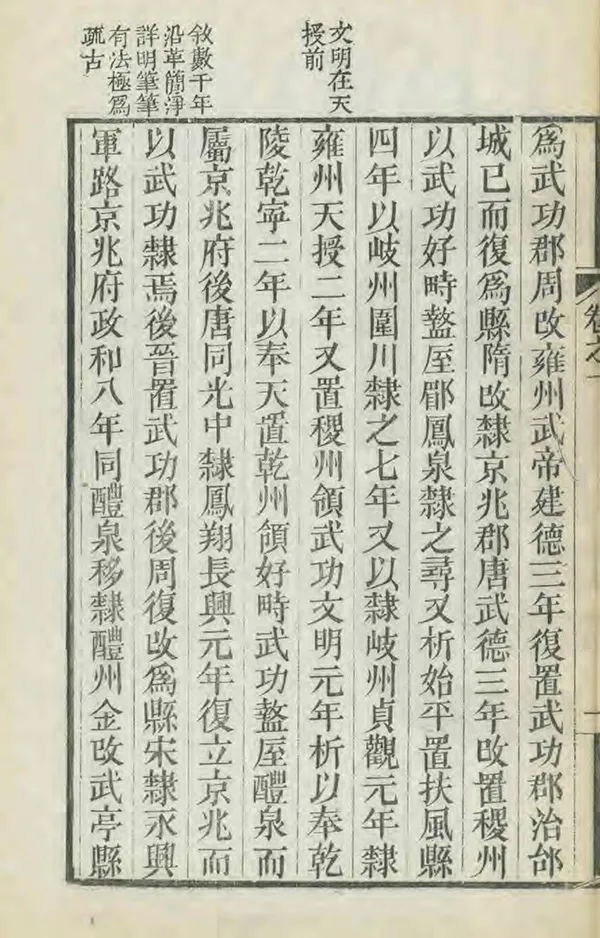 卷之一
文明在天
授前
敘數千年
沿革簡淨
詳明筆筆
有法極爲
疏古
爲武功郡周改雍州武帝建德三年復置武功郡治邰
城已而復爲縣隋改隸京兆郡唐武德三年改置稷州
以武功好畤盩厔郿鳳泉隸之尋又析始平置扶風縣
四年以岐州圍川隸之七年又以隸岐州貞觀元年隸
雍州天授二年又置稷州領武功文明元年析以奉乾
陵乾寧二年以奉天置乾州領好畤武功盩厔醴泉而
屬京兆府後唐同光中隸鳳翔長興元年復立京兆而
以武功隸焉後晉置武功郡後周復改爲縣宋隸永興
軍路京兆府政和八年同醴泉移隸醴州金改武亭縣